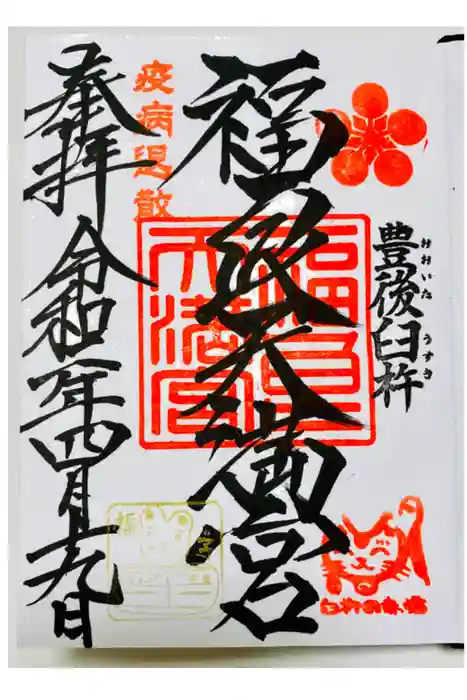 豊後臼杵
おおいた うすき
福良天満宮
福良
天満宮
疫病退散
奉拝 令和二年四月十九日